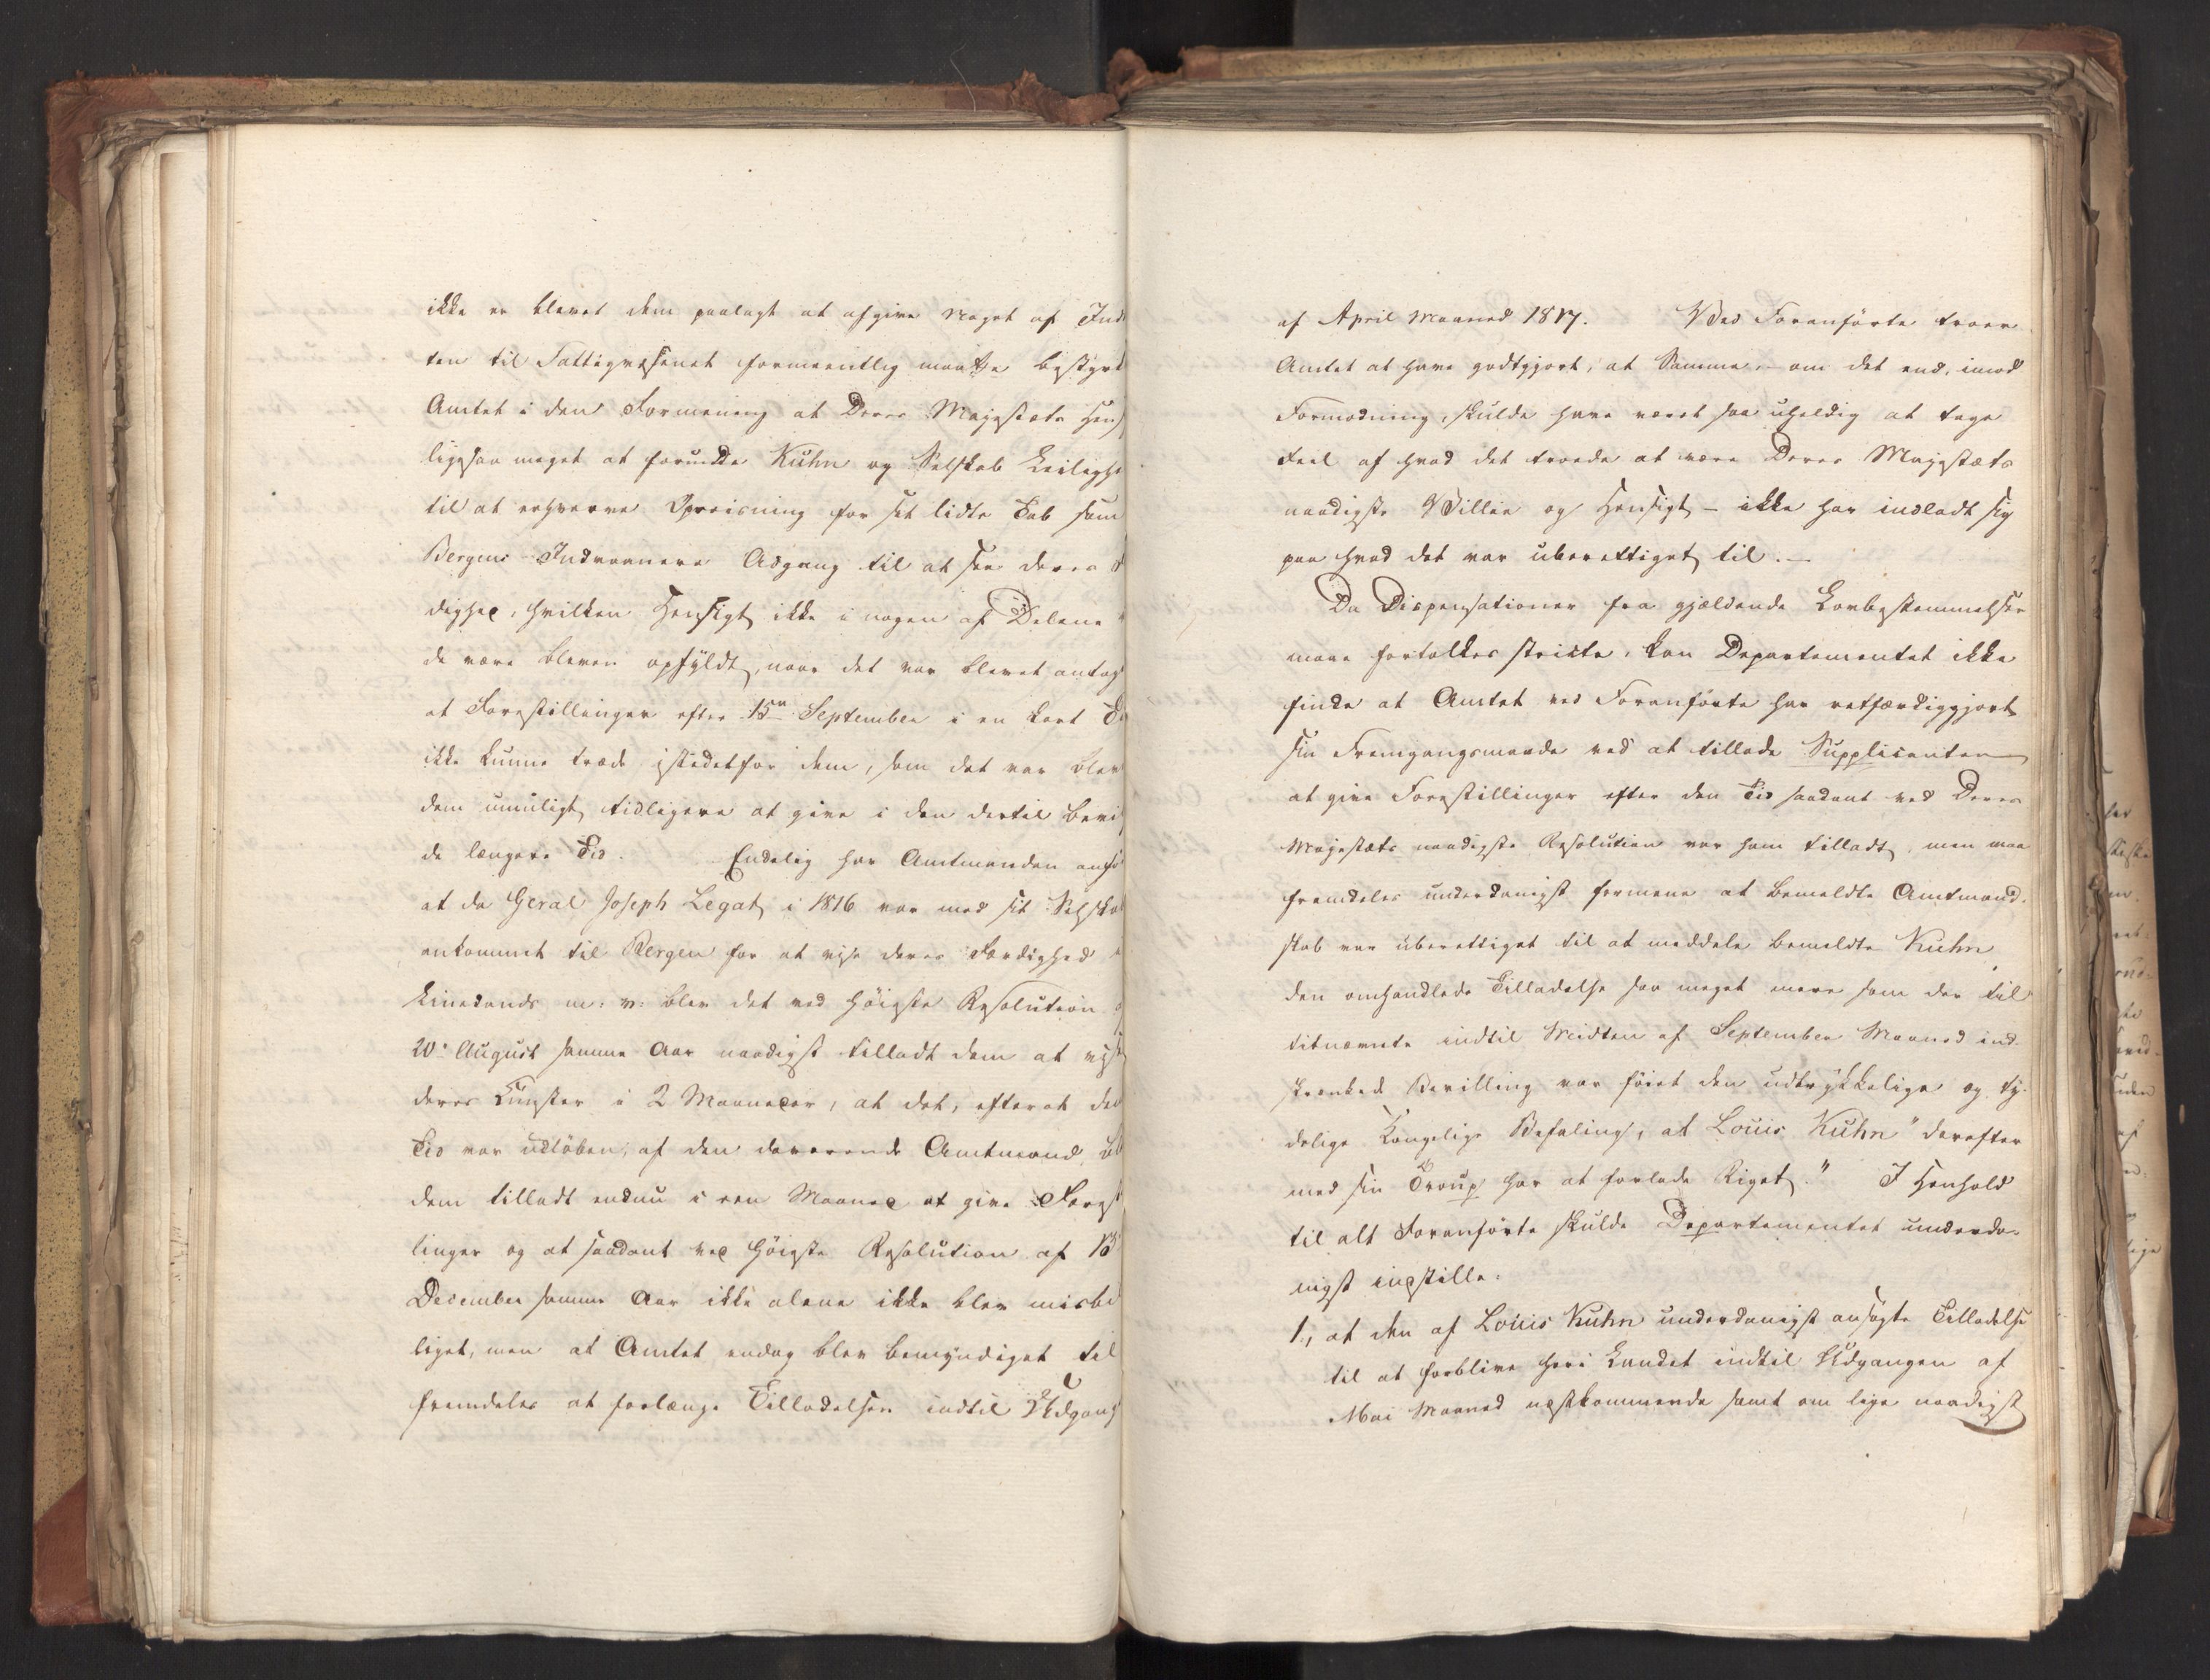 ikke er blevet dem paalagt at afgive noget af Ind
ten til Fattigvæsenet formeentlig maatte bestyrk
Amtet i den Formening at Deres Majestæts Hens
ligesaa meget at forunde Kuhn og Selskab Leilighe
til at erhverve Opreisning for sit lidte Tab som
Bergens Indvaanere Adgang til at see deres
dighed, hvilken Hensigt ikke i nogen af Delene
de være bleven opfyldt, naar det var blevet antag
at Forestillinger efter 15en September i en kort
ikke kunne træde istedetfor dem, som det var blev
dem umuligt tidligere at give i den dertil bevil
de længere Tid. Endelig har Amtmanden anfø
at da Geral Joseph Legat i 1816 var med sit Selskab
ankommet til Bergen for at vise deres Færdighed
Linedands m: v: blev det ved høieste Resolution
20de August samme Aar naadigst tilladt dem at vise
deres Kunster i 2 Maaneder, at det, efterat den
Tid var udløben, af den daværende Amtmand bl
dem tilladt endnu i een Maaned at give Forest
linger og at saadant ved høieste Resolution af
December samme Aar ikke alene ikke blev misbil
liget, men at Amtet endog blev bemyndiget til
fremdeles at forlænge Tilladelsen indtil Udgang
af April Maaned 1817. Ved Foranførte troer
Amtet at have godtgjort, at Samme, – om det end, imod
Formodning, skulde have været saa uheldig at tage
Feil af hvad det troede at være Deres Majestæts
naadigste Villie og Hensigt – ikke har indladt sig
paa hvad det var uberettiget til. –
Da Dispensationer fra gjældende Lovbestemmelser
maae fortolkes stricte, kan Departementet ikke
finde at Amtet ved Foranførte har retfærdiggjort
sin Fremgangsmaade ved at tillade Supplicanten
at give Forestillinger efter den Tid saadant ved Deres
Majestæts naadigste Resolution var ham tilladt, men maa
fremdeles underdanigst formene at bemeldte Amtmand-
skab var uberettiget til at meddele bemeldte Kuhn
den omhandlede Tilladelse saa meget mere som der til
titnævnte indtil Midten af September Maaned ind-
skrænkede Bevilling var føiet den udtrykkelige og ty-
delige Kongelige Befaling, at Louis Kuhn "derefter
med sin Troup har at forlade Riget." I Henhold
til alt Foranførte skulde Departementet underda-
nigst indstille:
1, at den af Louis Kuhn underdanigst ansøgte Tilladelse
til at forblive her i Landet indtil Udgangen af
Mai Maaned næstkommende samt om lige naadigst